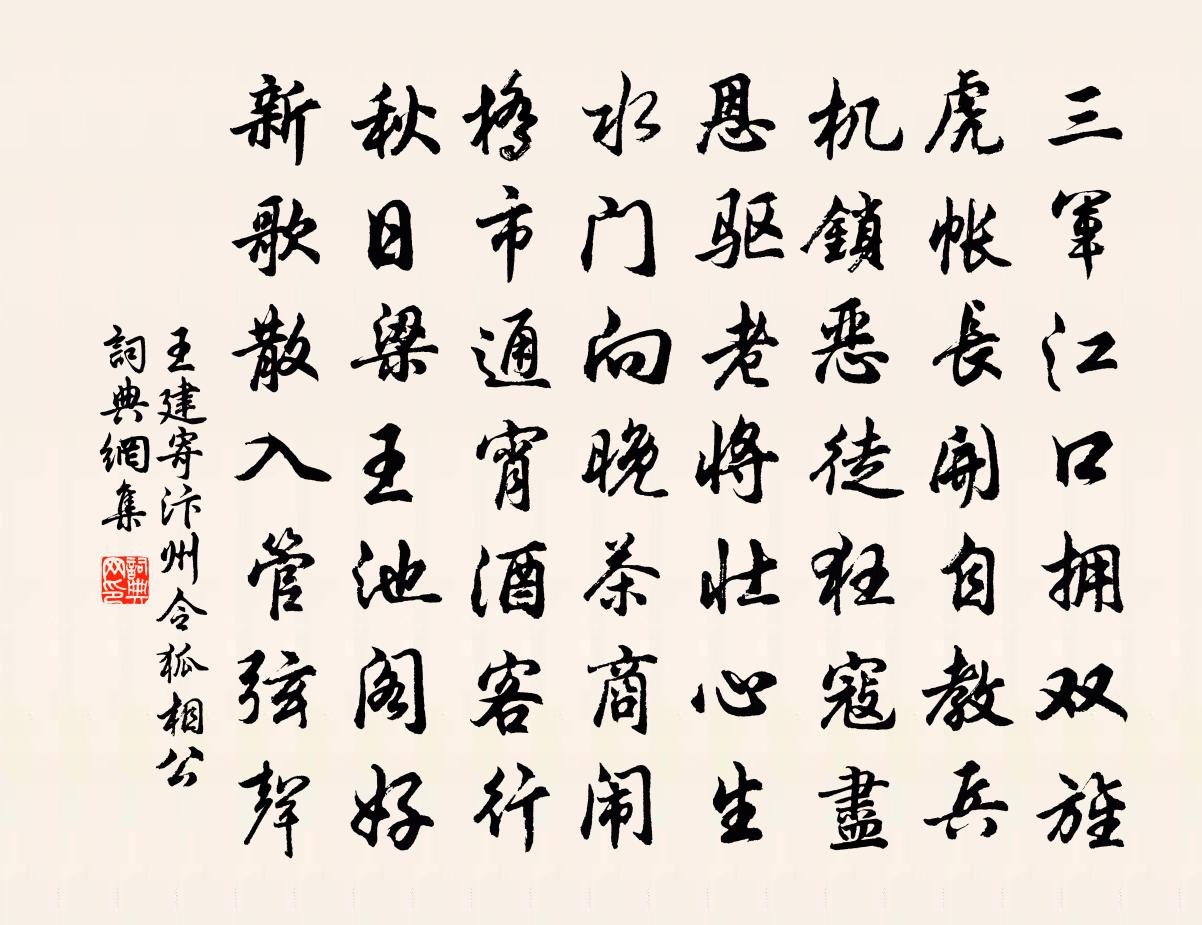 三军江口拥双旌
虎帐長開自教兵
机鎖恶徒狂寇盡
恩驱老将壮心生
水门向晚茶商闹
橋市通宵酒客行
秋日梁王池阁好
新歌散入管弦聲
王建寄汴州令狐相公
詞典網集
詞典网印